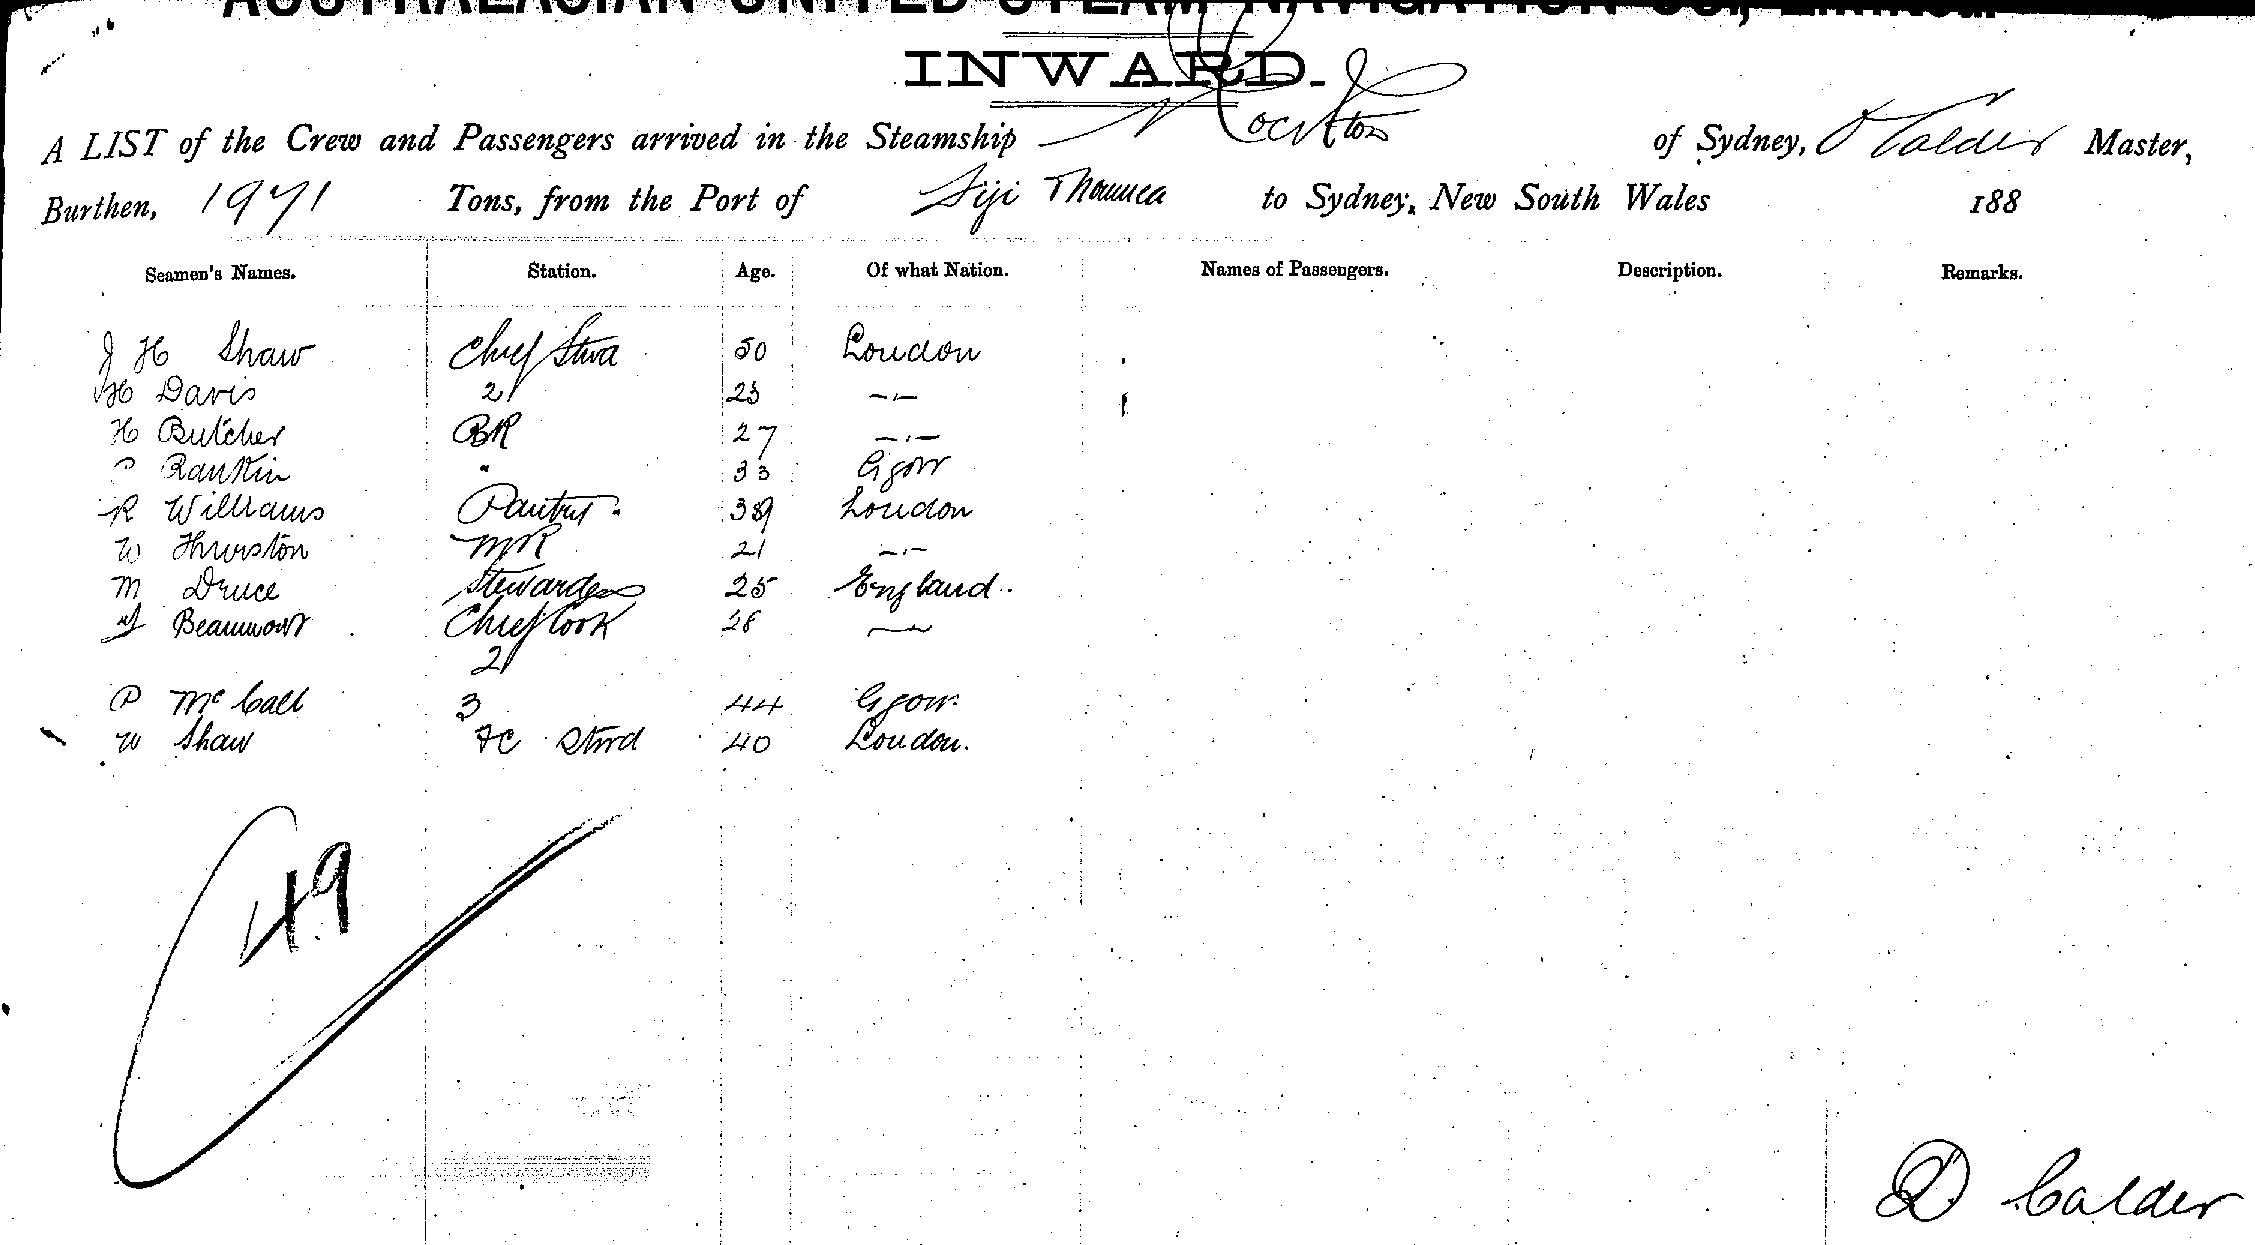 AUSTRALASIAN UNITED STEAM NAVIGATION CO., Limited.
INWARD.
A LIST of the Crew and Passengers arrived in the Steamship Rockton of Sydney, D Calder Master,
Burthen, 1971 Tons, from the Port of Fiji to Sydney, New South Wales 188
Seamen's Names. Station. Age. Of what Nation. Names of Passengers. Description. Remarks.
J H Shaw Chief Stwd 50 London
H Davis 2/ 23 —·—
H Butcher BR 27 —·—
P Rankin " 33 Ggow
R Williams Pantry 39 London
W Thurston MR 21 —·—
M Druce Stewardess 25 England
Beaumont Chief Cook 28 —
2/
P McCall 3 44 Ggow
W Shaw FC Stwd 40 London.
49
D Calder